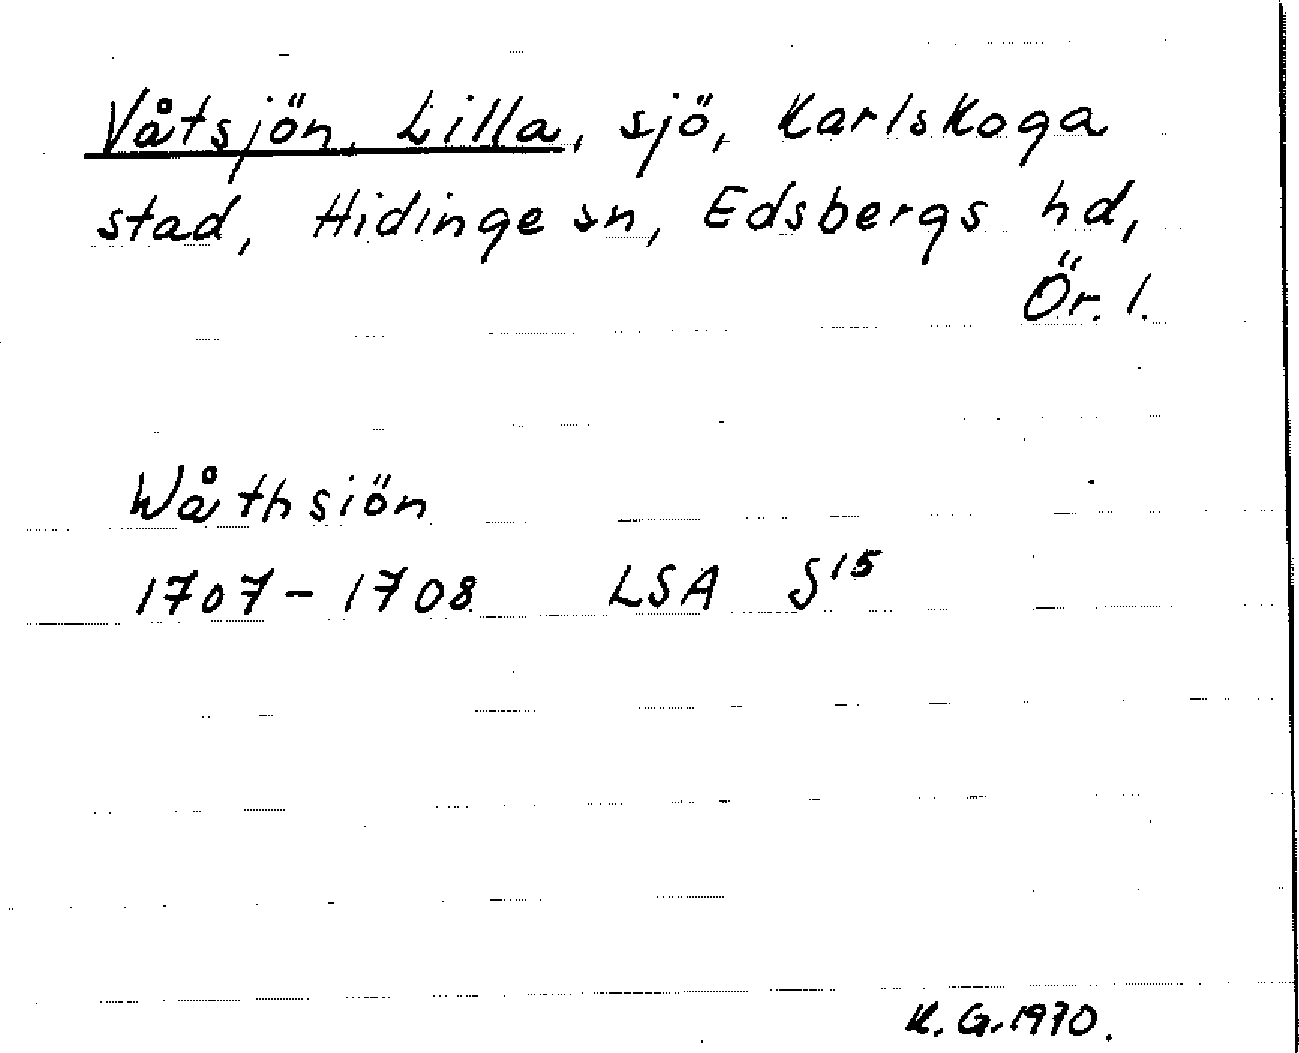 Våtsjön, Lilla, sjö, Karlskoga
stad, Hidinge sn, Edsbergs hd,
Ör. l.
Wåthsiön
1707-1708 LSA S¹⁵
K. G. 1970.